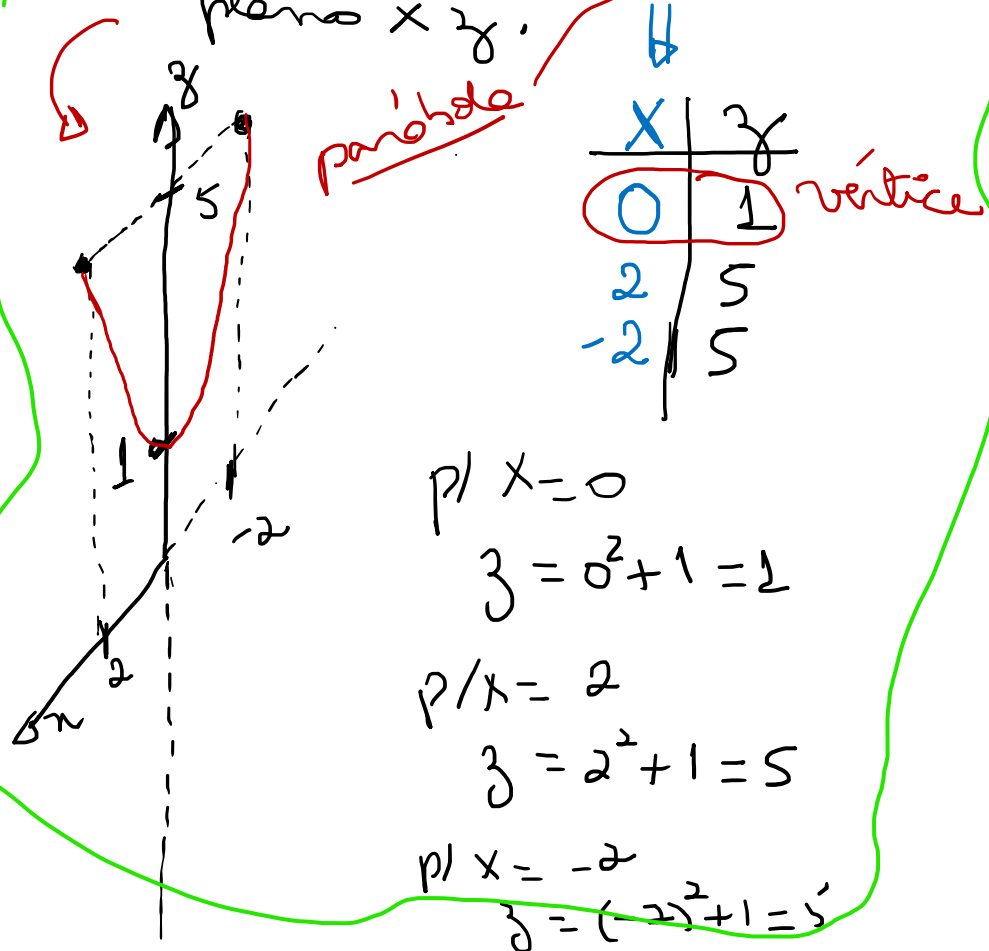 plano x z.
z
5
1
-2
2
x
parábola
x z
0 1 vértice
2 5
-2 5
p/ x = 0
z = 0² + 1 = 1
p/ x = 2
z = 2² + 1 = 5
p/ x = -2
z = (-2)² + 1 = 5